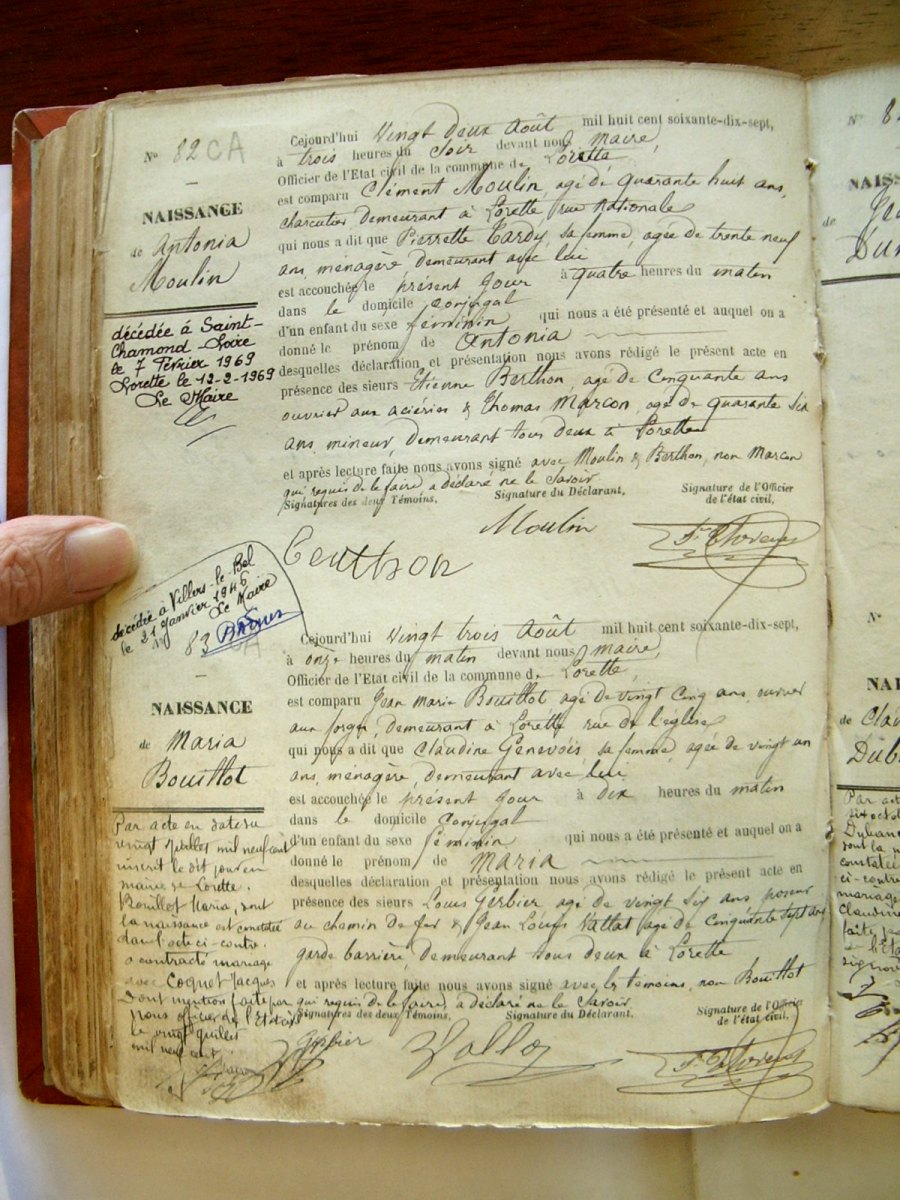 N° 82 CA
NAISSANCE
de Antonia
Moulin
décédée à Saint-
Chamond Loire
le 7 Février 1969
Lorette le 12-2-1969
Le Maire
Cejourd'hui Vingt deux Août mil huit cent soixante-dix-sept,
à trois heures du Soir devant nous Maire,
Officier de l'Etat civil de la commune de Lorette
est comparu Clément Moulin, agé de quarante huit ans,
charcutier demeurant à Lorette rue Nationale
qui nous a dit que Pierrette Tardy, sa femme, agée de trente neuf
ans, ménagère, demeurant avec lui
est accouchée le présent jour à quatre heures du matin
dans le domicile conjugal
d'un enfant du sexe féminin qui nous a été présenté et auquel on a
donné le prénom de Antonia
desquelles déclaration et présentation nous avons rédigé le présent acte en
présence des sieurs Etienne Berthon, agé de Cinquante ans
ouvrier aux aciéries & Thomas Marcon, agé de quarante six
ans, mineur, demeurant tous deux à Lorette
et après lecture faite nous avons signé avec Moulin & Berthon, non Marcon
qui requis de le faire, a déclaré ne le Savoir
Signatures des deux Témoins, Signature du Déclarant, Signature de l'Officier
de l'état civil,
Moulin
Berthon
décédée à Villiers-le-Bel
le 21 Janvier 1946
Le Maire
N° 83 CA
NAISSANCE
de Maria
Bouillot
Par acte en date du
vingt juillet mil neuf cent
inscrit le dit jour en
mairie de Lorette.
Bouillot Maria, dont
la naissance est constatée
dans l'acte ci-contre.
a contracté mariage
avec Coquet Jacques
Dont mention faite par
nous officier de l'Etat civil
le vingt juillet
mil neuf cent
Cejourd'hui Vingt trois Août mil huit cent soixante-dix-sept,
à onze heures du matin devant nous maire,
Officier de l'Etat civil de la commune de Lorette,
est comparu Jean Marie Bouillot agé de vingt Cinq ans, ouvrier
aux forges, demeurant à Lorette rue de l'église
qui nous a dit que Claudine Genevois, sa femme, agée de vingt un
ans, ménagère, demeurant avec lui
est accouchée le présent jour à dix heures du matin
dans le domicile conjugal
d'un enfant du sexe féminin qui nous a été présenté et auquel on a
donné le prénom de Maria
desquelles déclaration et présentation nous avons rédigé le présent acte en
présence des sieurs Louis Gerbier agé de vingt six ans, poseur
au chemin de fer & Jean Louis Vallat agé de cinquante sept ans
garde barrière, demeurant tous deux à Lorette
et après lecture faite nous avons signé avec les témoins, non Bouillot
qui requis de le faire, a déclaré ne le Savoir
Signatures des deux Témoins, Signature du Déclarant, Signature de l'Officier
de l'état civil,
Gerbier